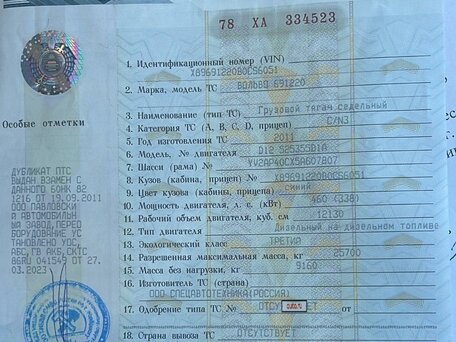 78 ХА 334523
1. Идентификационный номер (VIN)
X8969122080CS6051
2. Марка, модель ТС
ВОЛЬВО 691220
3. Наименование (тип ТС)
Грузовой тягач седельный
4. Категория ТС (А, В, С, D, прицеп)
C/N3
5. Год изготовления ТС
2011
6. Модель, № двигателя
7. Шасси (рама) №
8. Кузов (кабина, прицеп) №
X8969122080CS6051
9. Цвет кузова (кабины, прицепа)
синий
10. Мощность двигателя, л. с. (кВт)
460 (338)
11. Рабочий объем двигателя, куб. см
12130
12. Тип двигателя
Дизельный на дизельном топливе
13. Экологический класс
ТРЕТИЙ
14. Разрешенная максимальная масса, кг
25700
15. Масса без нагрузки, кг
9160
16. Изготовитель ТС (страна)
ООО СПЕЦАВТОТЕХНИКА(РОССИЯ)
17. Одобрение типа ТС №
от
18. Страна вывоза ТС
ОТСУТСТВУЕТ
Особые отметки
ДУБЛИКАТ ПТС
ВЫДАН ВЗАМЕН С
ДАННОГО 80НК 82
1216 ОТ 19.09.2011
ООО ПАВЛОВСКИ
Й АВТОМОБИЛЬН
ЫЙ ЗАВОД,ПЕРЕО
БОРУДОВАНИЕ УС
ТАНОВЛЕНО УОС,
АБС,ГВ АКБ,СКТС
86RU 041549 ОТ 27.
03.2023